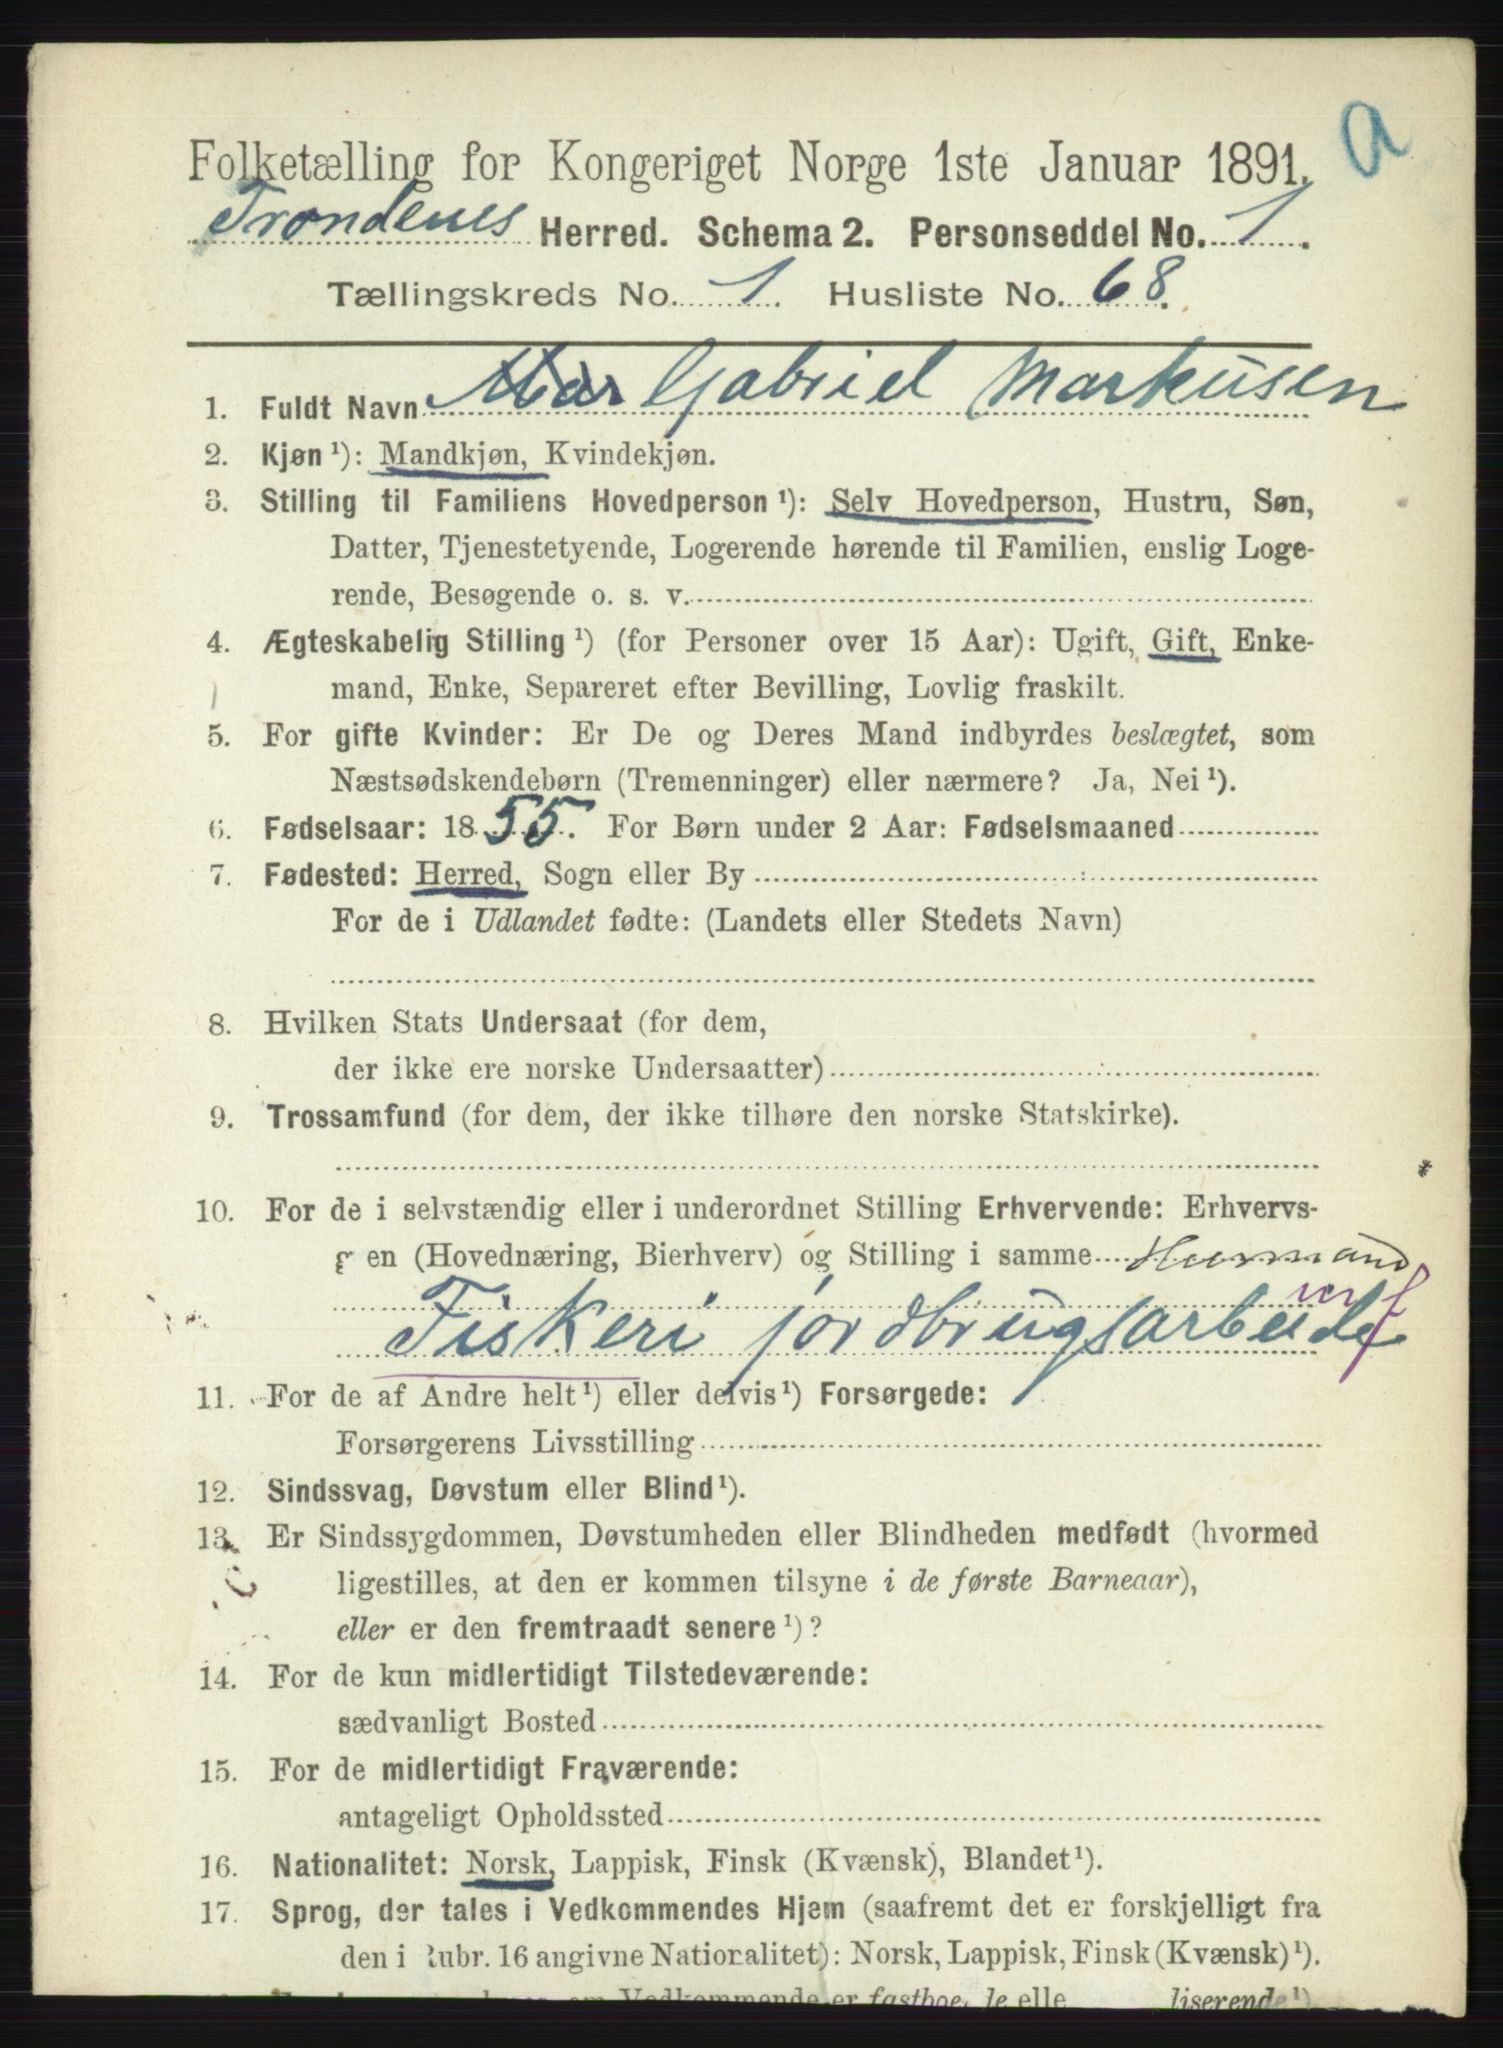 a
Folketælling for Kongeriget Norge 1ste Januar 1891.
Trondenes Herred. Schema 2. Personseddel No. 1.
Tællingskreds No. 1. Husliste No. 68.
1. Fuldt Navn Mar Gabriel Markusen
2. Kjøn ¹): Mandkjøn, Kvindekjøn.
3. Stilling til Familiens Hovedperson ¹): Selv Hovedperson, Hustru, Søn,
Datter, Tjenestetyende, Logerende hørende til Familien, enslig Loge-
rende, Besøgende o. s. v.
4. Ægteskabelig Stilling ¹) (for Personer over 15 Aar): Ugift, Gift, Enke-
mand, Enke, Separeret efter Bevilling, Lovlig fraskilt.
5. For gifte Kvinder: Er De og Deres Mand indbyrdes beslægtet, som
Næstsødskendebørn (Tremenninger) eller nærmere? Ja, Nei ¹).
6. Fødselsaar: 1855. For Børn under 2 Aar: Fødselsmaaned
7. Fødested: Herred, Sogn eller By
For de i Udlandet fødte: (Landets eller Stedets Navn)
8. Hvilken Stats Undersaat (for dem,
der ikke ere norske Undersaatter)
9. Trossamfund (for dem, der ikke tilhøre den norske Statskirke).
10. For de i selvstændig eller i underordnet Stilling Erhvervende: Erhvervs-
g en (Hovednæring, Bierhverv) og Stilling i samme Husmand
Fiskeri jordbrugsarbeide
11. For de af Andre helt ¹) eller delvis ¹) Forsørgede:
Forsørgerens Livsstilling
12. Sindssvag, Døvstum eller Blind ¹).
13. Er Sindssygdommen, Døvstumheden eller Blindheden medfødt (hvormed
ligestilles, at den er kommen tilsyne i de første Barneaar),
eller er den fremtraadt senere ¹)?
14. For de kun midlertidigt Tilstedeværende:
sædvanligt Bosted
15. For de midlertidigt Fraværende:
antageligt Opholdssted
16. Nationalitet: Norsk, Lappisk, Finsk (Kvænsk), Blandet ¹).
17. Sprog, der tales i Vedkommendes Hjem (saafremt det er forskjelligt fra
den i Rubr. 16 angivne Nationalitet): Norsk, Lappisk, Finsk (Kvænsk) ¹).
Vedkommende er fastboe de elle liserende ¹)